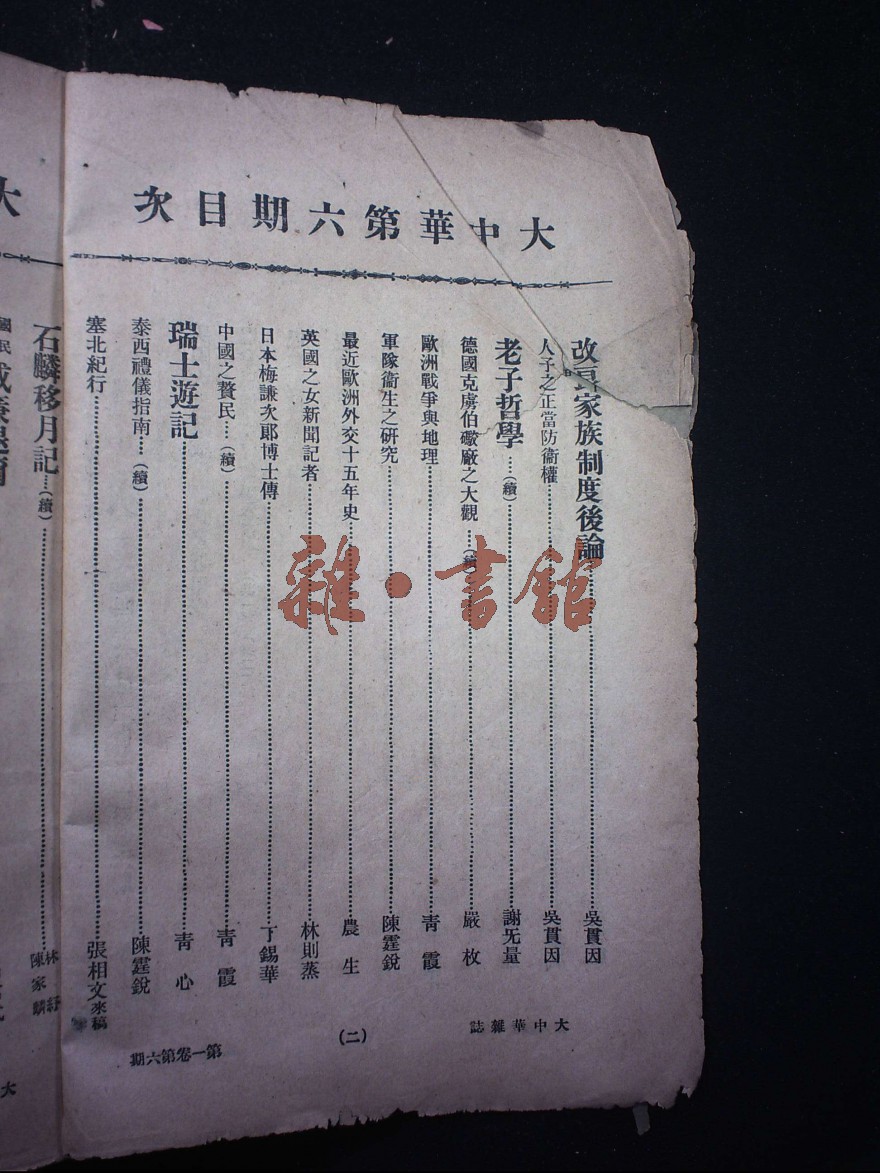 大中華第六期目次
改良家族制度後論……吳貫因
人子之正當防衞權……吳貫因
老子哲學……(續)……謝无量
德國克虜伯礮廠之大觀……(續)……嚴枚
歐洲戰爭與地理……靑霞
軍隊衞生之硏究……陳霆銳
最近歐洲外交十五年史……農生
英國之女新聞記者……林則蒸
日本梅謙次郞博士傳……丁錫華
中國之贅民……(續)……靑霞
瑞士遊記……靑心
泰西禮儀指南……(續)……陳霆銳
塞北紀行……張相文來稿
大中華雜誌
(二)
第一卷第六期
大
石麟移月記……(續)……林紓 陳家麟
國民
大
雜·書館